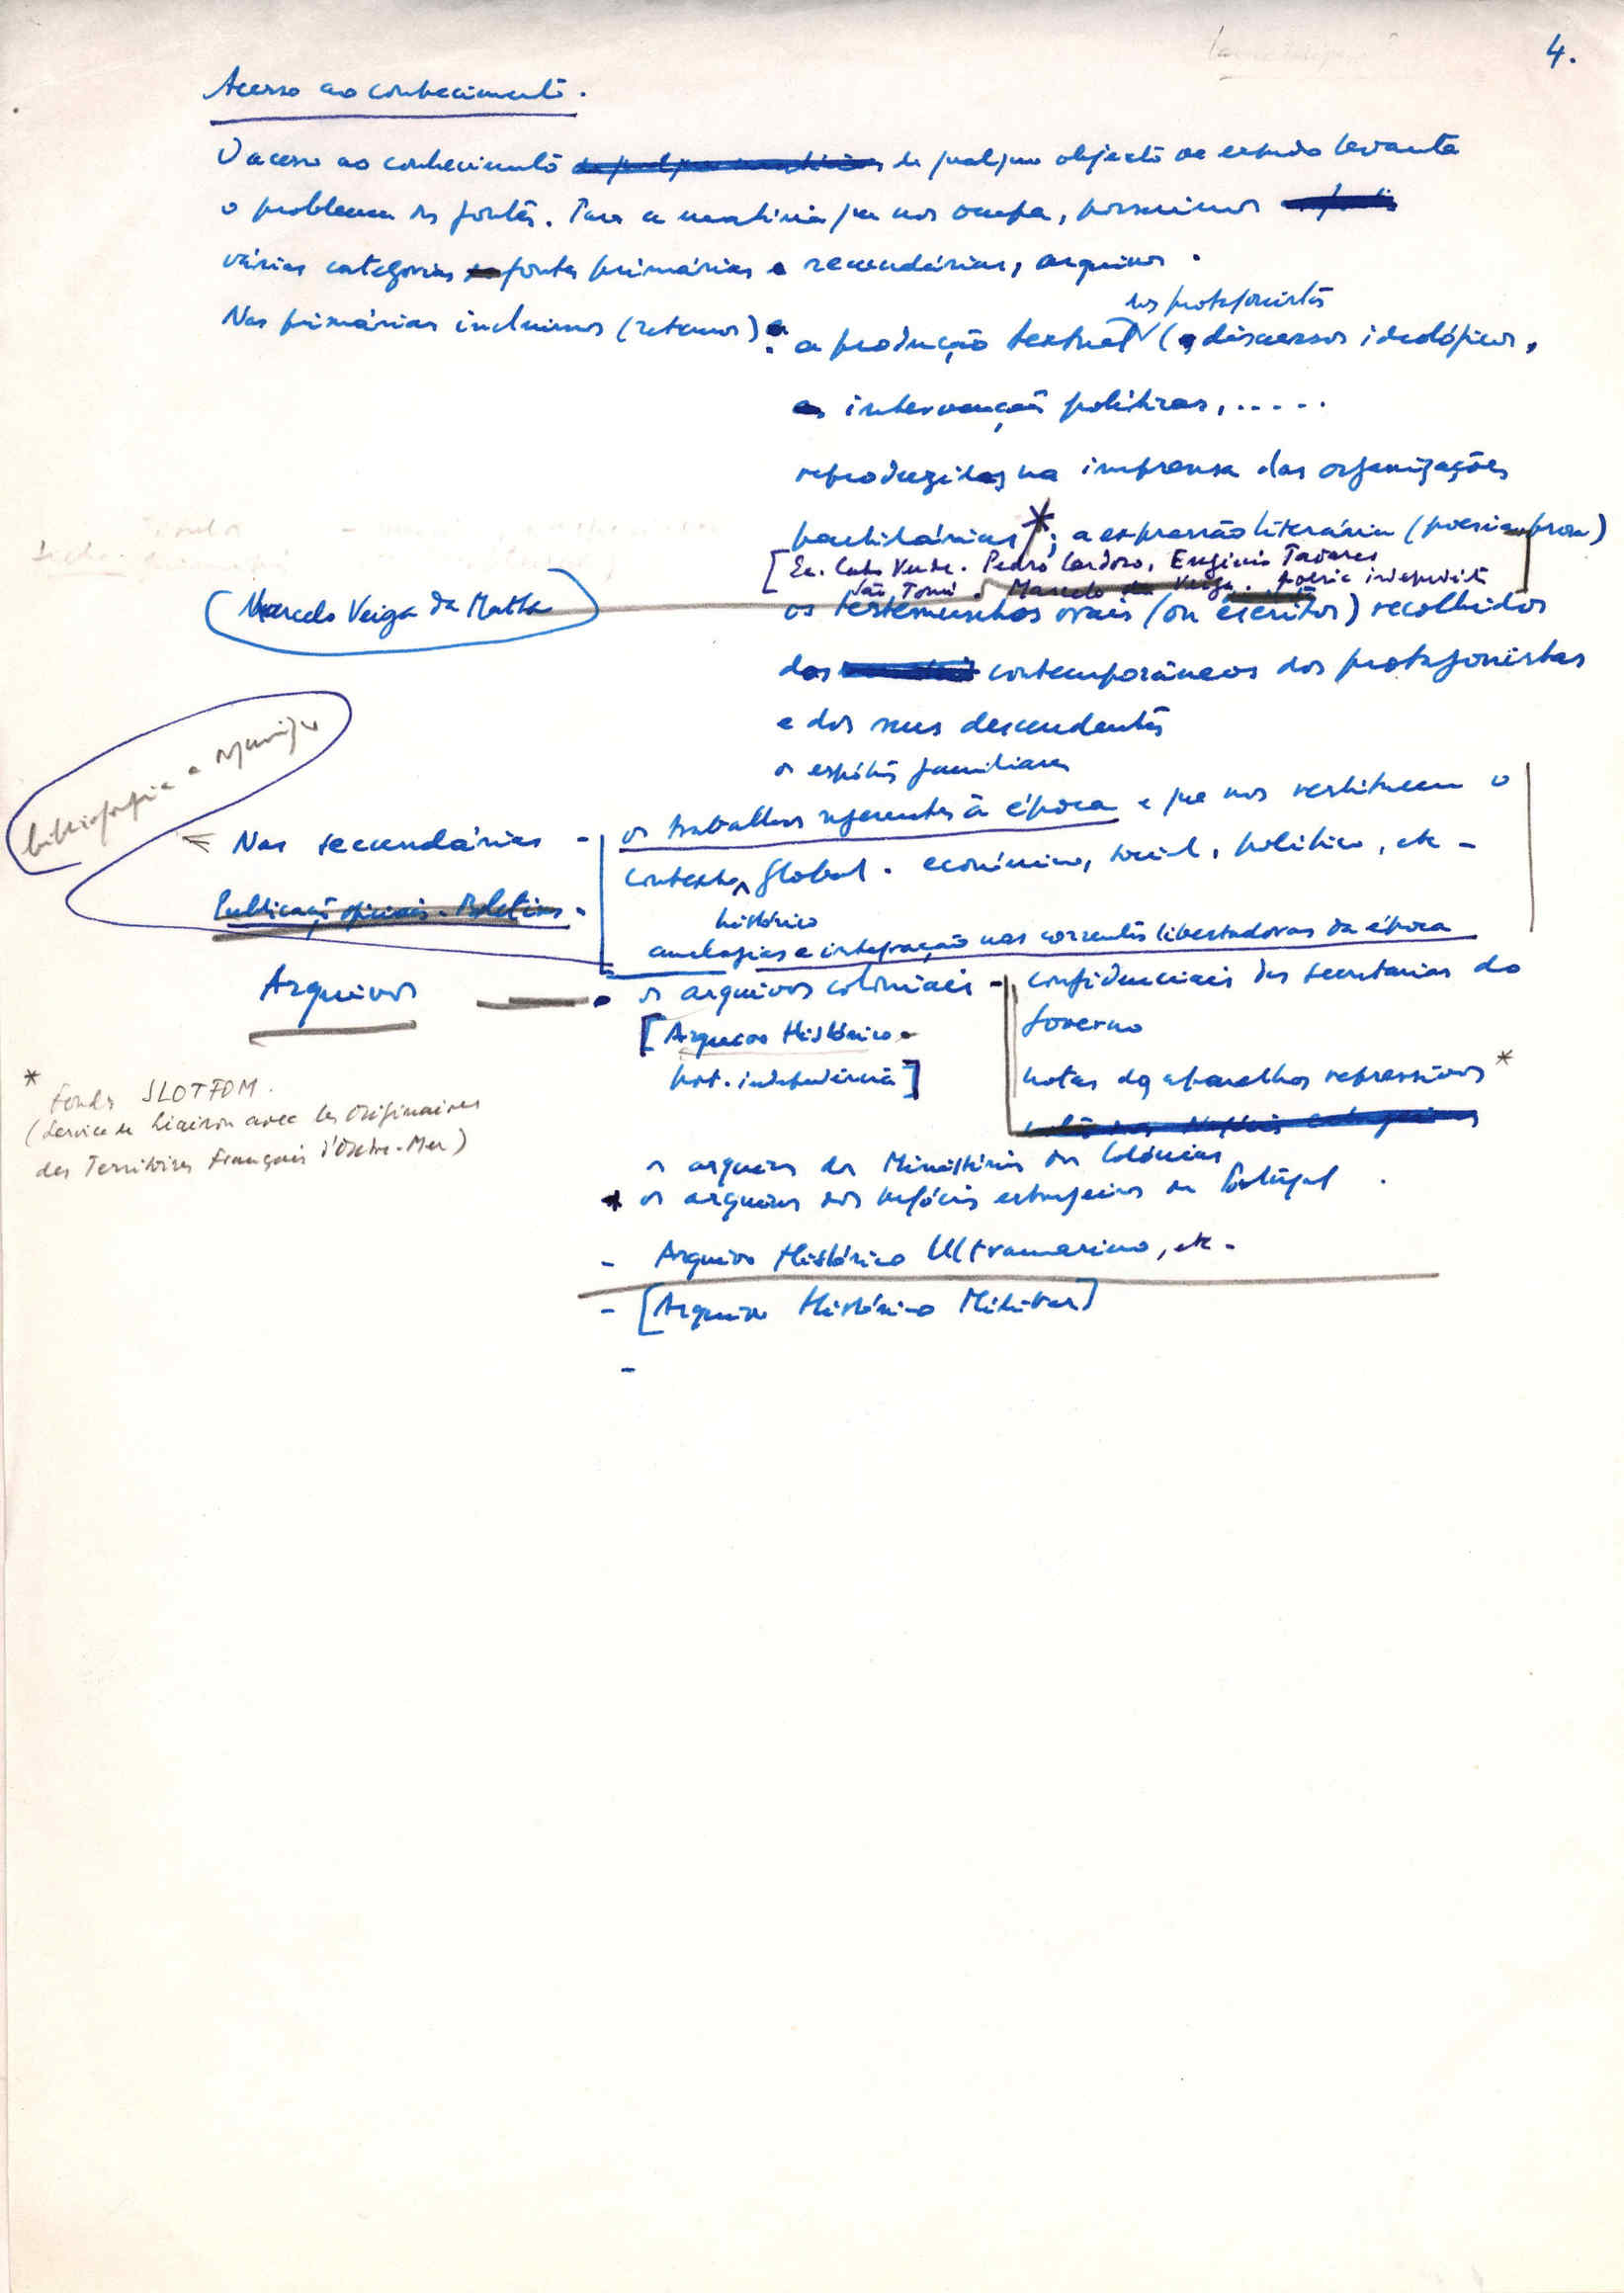 4.
Acesso ao conhecimento.
O acesso ao conhecimento de qualquer objecto de estudo levanta
o problema das fontes. Para a matéria que nos ocupa, possuimos
várias categorias fontes primárias e secundárias, arquivos.
dos protagonistas
Nas primárias incluimos (retemos): a produção textual (discursos ideológicos,
intervenções políticas, .....
reproduzidas na imprensa das organizações
partidárias*; a expressão literária (poesia prosa)
[Ex. Cabo Verde. Pedro Cardoso, Eugénio Tavares
São Tomé. Marcelo da Veiga. poesia
(Marcelo Veiga da Matta)
os testemunhos orais (ou escritos) recolhidos
dos contemporâneos dos protagonistas
e dos seus descendentes
os espólios familiares
bibliografia a
Nas secundárias - os trabalhos referentes à época e que nos restituem o
contexto global. económico, social, político, etc -
histórico
Publicações oficiais. Boletins.
analogias e integração nas correntes libertadoras da época
Arquivos - os arquivos coloniais - confidenciais das secretarias do
Governo
[Arquivo Histórico -
post. independência]
notas dos aparelhos repressivos *
* Fonds SLOTFOM.
(Service de Liaison avec les Originaires
des Territoires Français d'Outre-Mer)
os arquivos do Ministério das Colónias
* os arquivos dos negócios estrangeiros de Portugal.
- Arquivo Histórico Ultramarino, etc.
- [Arquivo Histórico Militar]
-